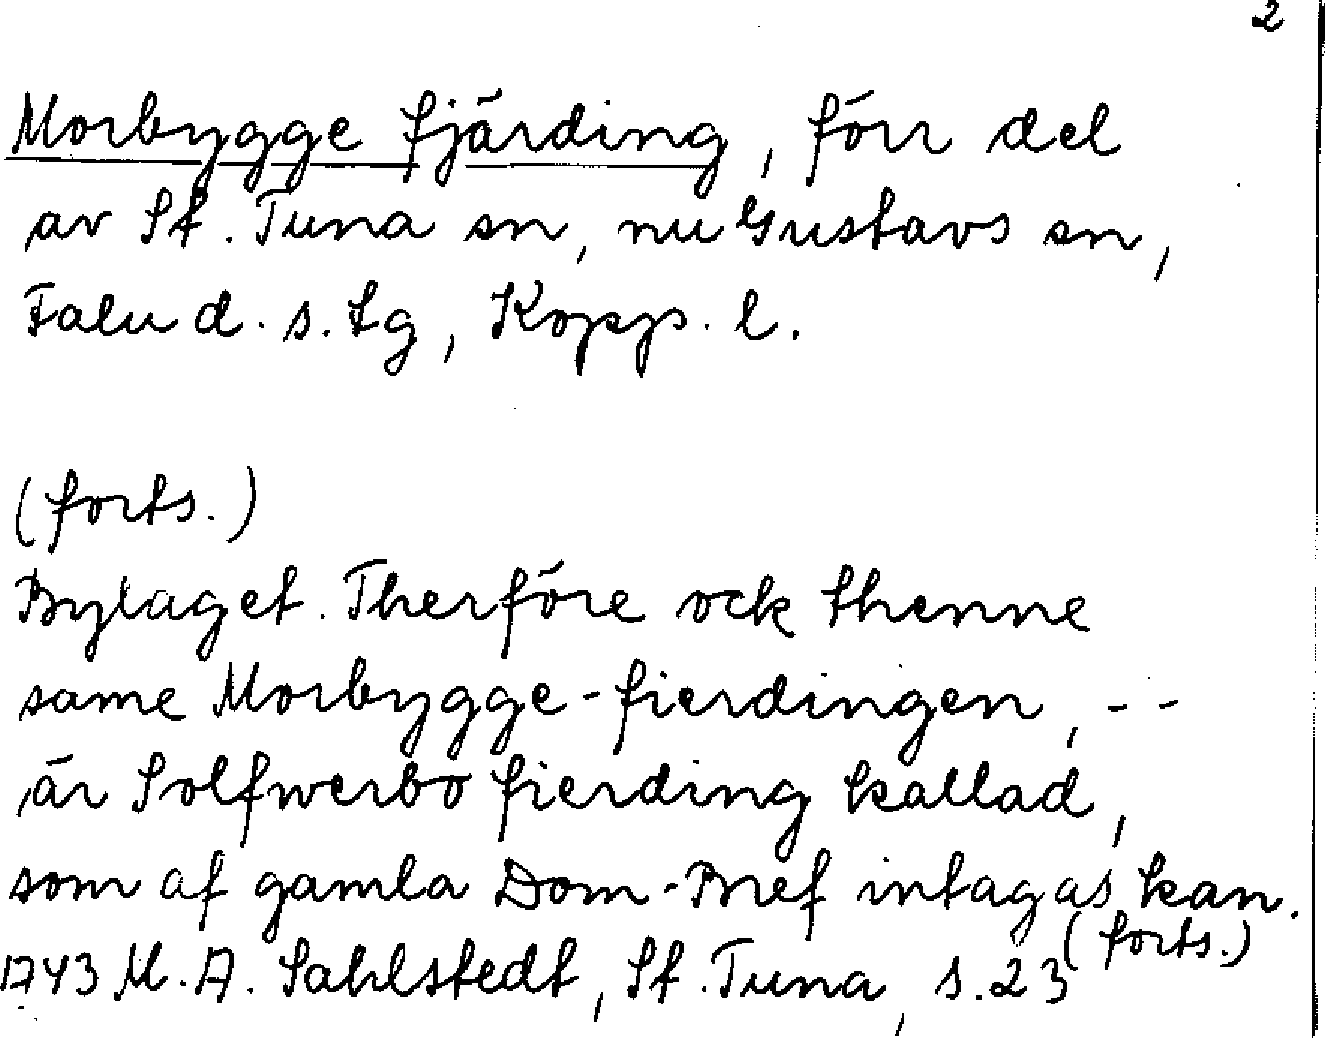 2
Morbygge fjärding, förr del
av St. Tuna sn, nu Gustavs sn,
Falu d. s. tg, Kopp. l.
(forts.)
Bylaget. Therföre ock thenne
same Morbygge-fierdingen, --
är Solfwerbo fierding kallad,
som af gamla Dom-Bref intagas kan.
1743 M. A. Sahlstedt, St. Tuna, s. 23 (forts.)